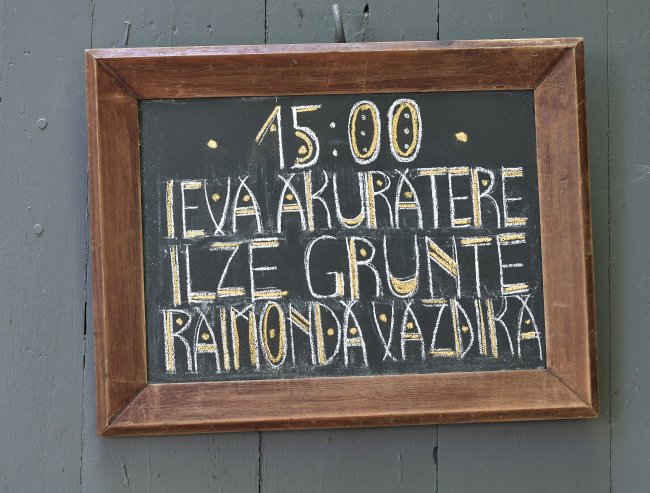 15:00
IEVA AKURATERE
ILZE GRUNTE
RAIMONDA VAZDIKA